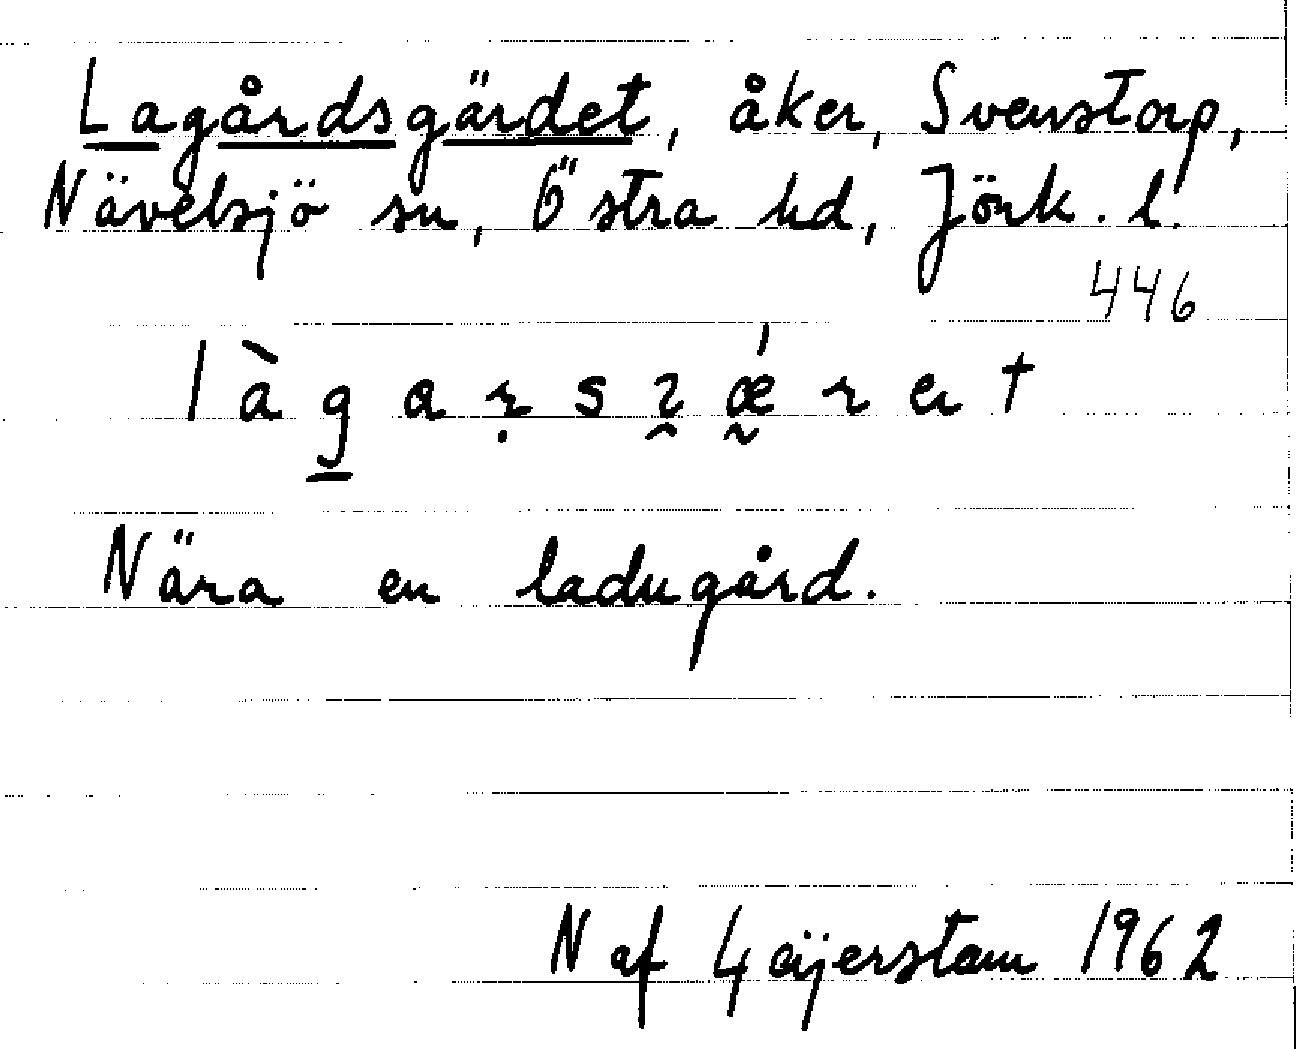 Lagårdsgärdet, åker, Svenstorp,
Nävelsjö sn, Östra hd, Jönk. l.
446
làgaṛsɀǽret
Nära en ladugård.
N af Geijerstam 1962